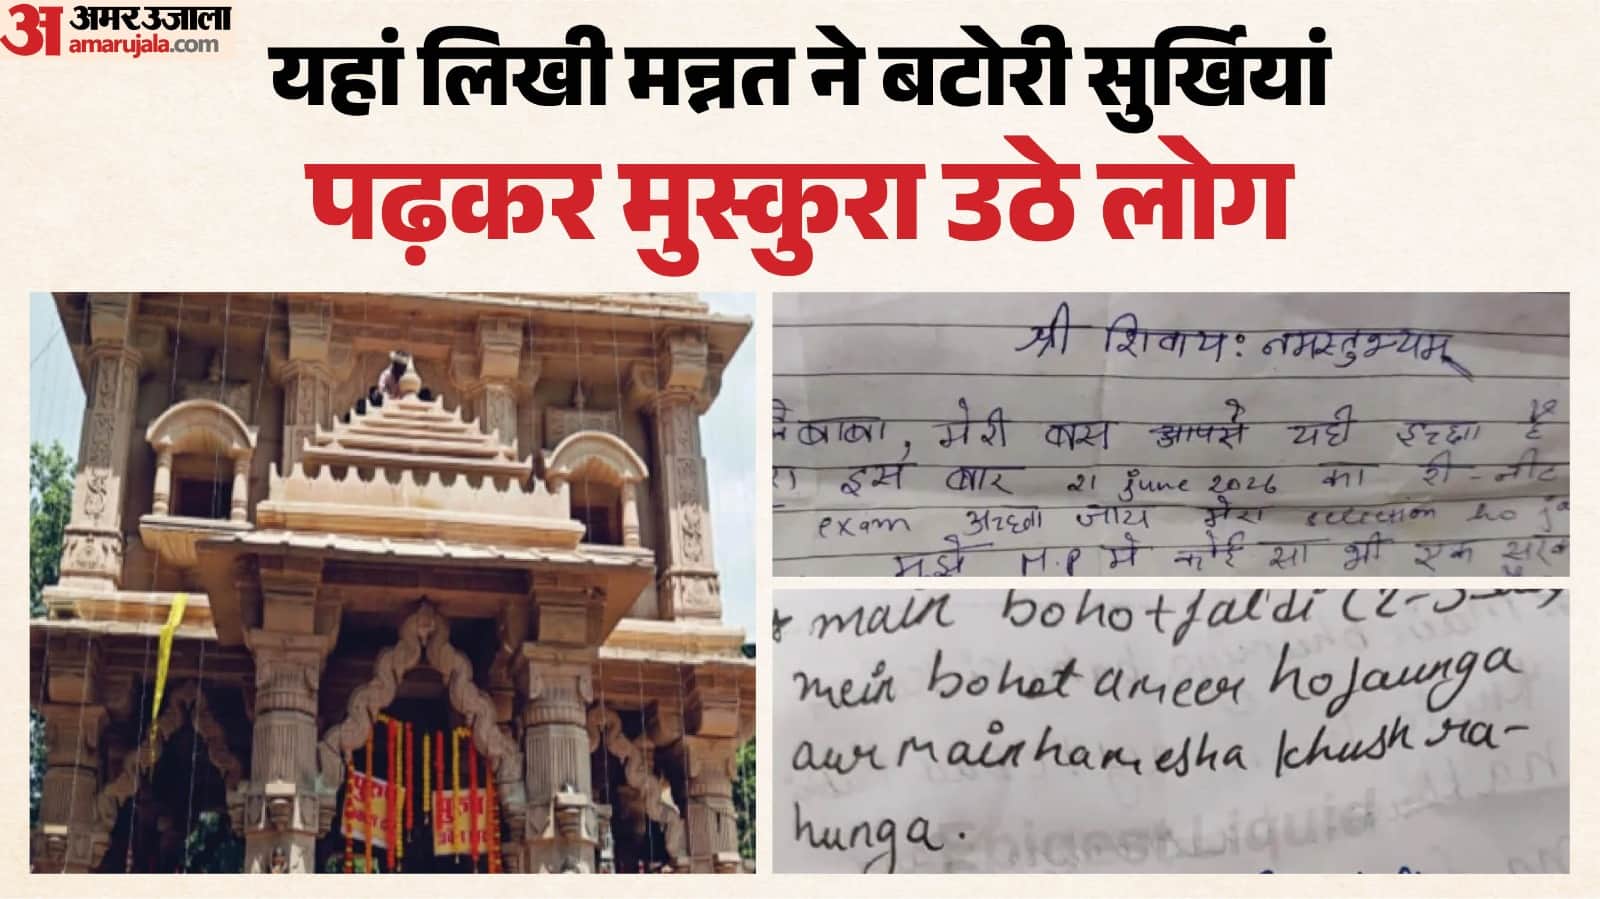 अमर उजाला
amarujala.com
यहां लिखी मन्नत ने बटोरी सुर्खियां
पढ़कर मुस्कुरा उठे लोग
श्री शिवाय: नमस्तुभ्यम्
बाबा, मेरी बस आपसे यही इच्छा है
इस बार 21 june 2026 का री-नीट
exam अच्छा जाय मेरा selection ho ja
मुझे M.P मे कोई सा भी एक
main bohot jaldi
mein bohot ameer hojaunga
aur main hamesha khush ra-
hunga.